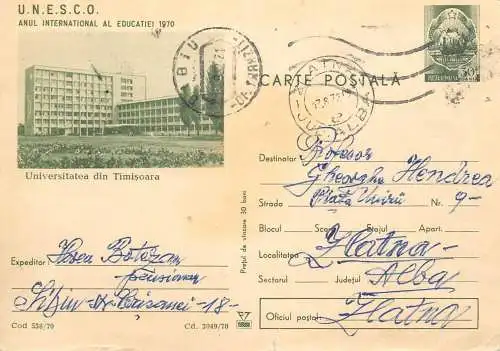 U.N.E.S.C.O.
ANUL INTERNATIONAL AL EDUCATIEI 1970
Universitatea din Timișoara
CARTE POȘTALĂ
Destinatar Profesor
Gheorghe Hendrea
Strada Piața Unirii Nr. 9-
Blocul Scara Etajul Apart.
Localitatea Zlatna-
Sectorul Județul Alba
Oficiul poștal: Zlatna
Expeditor: Hosea Botezan
pensionar
Sibiu
-18-
Prețul de vînzare 30 bani
Cod 558/70
Cd. 3949/70